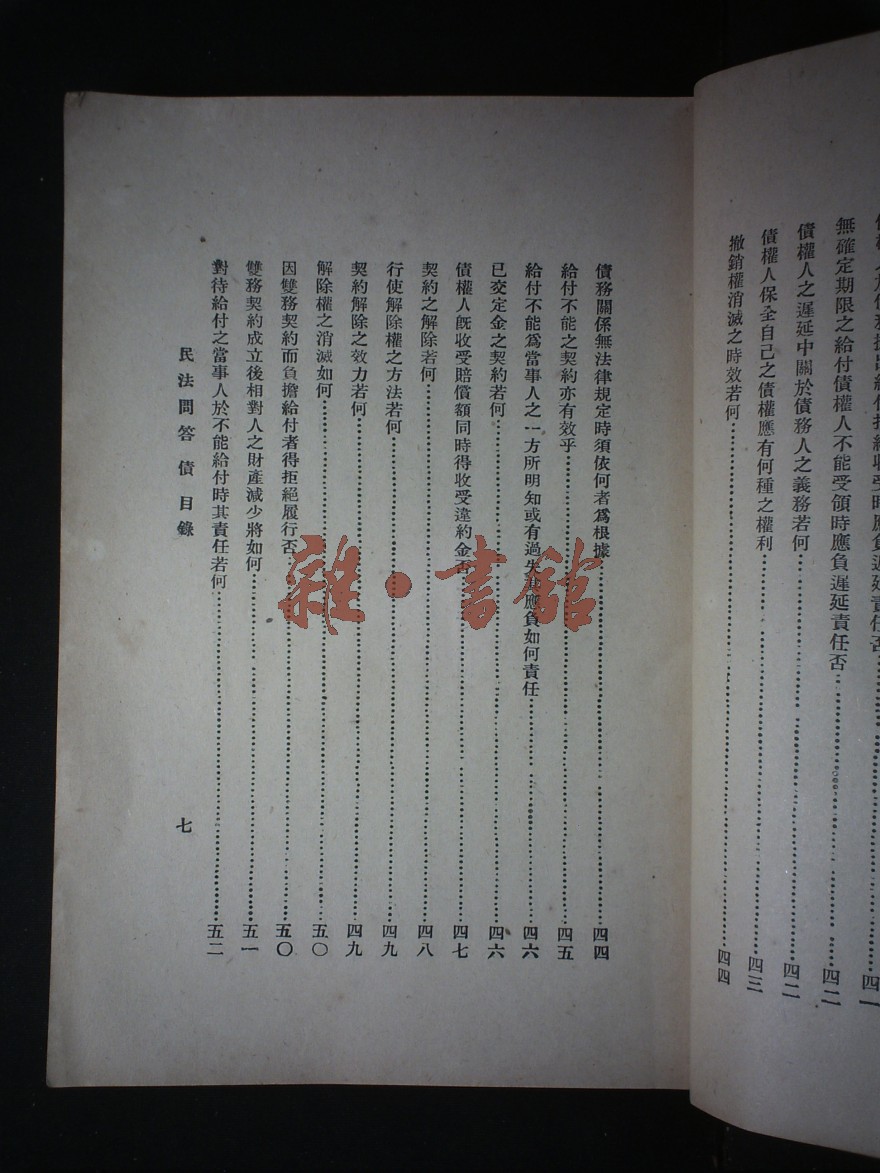 無確定期限之給付債權人不能受領時應負遲延責任否……四二
債權人之遲延中關於債務人之義務若何……四二
債權人保全自己之債權應有何種之權利……四三
撤銷權消滅之時效若何……四四
債務關係無法律規定時須依何者爲根據……四四
給付不能之契約亦有效乎……四五
給付不能爲當事人之一方所明知或有過失其應負如何責任……四六
已交定金之契約若何……四六
債權人旣收受賠償額同時得收受違約金否……四七
契約之解除若何……四八
行使解除權之方法若何……四九
契約解除之效力若何……四九
解除權之消滅如何……五〇
因雙務契約而負擔給付者得拒絕履行否……五〇
雙務契約成立後相對人之財產減少將如何……五一
對待給付之當事人於不能給付時其責任若何……五二
民法問答 債 目錄 七
雜·書館